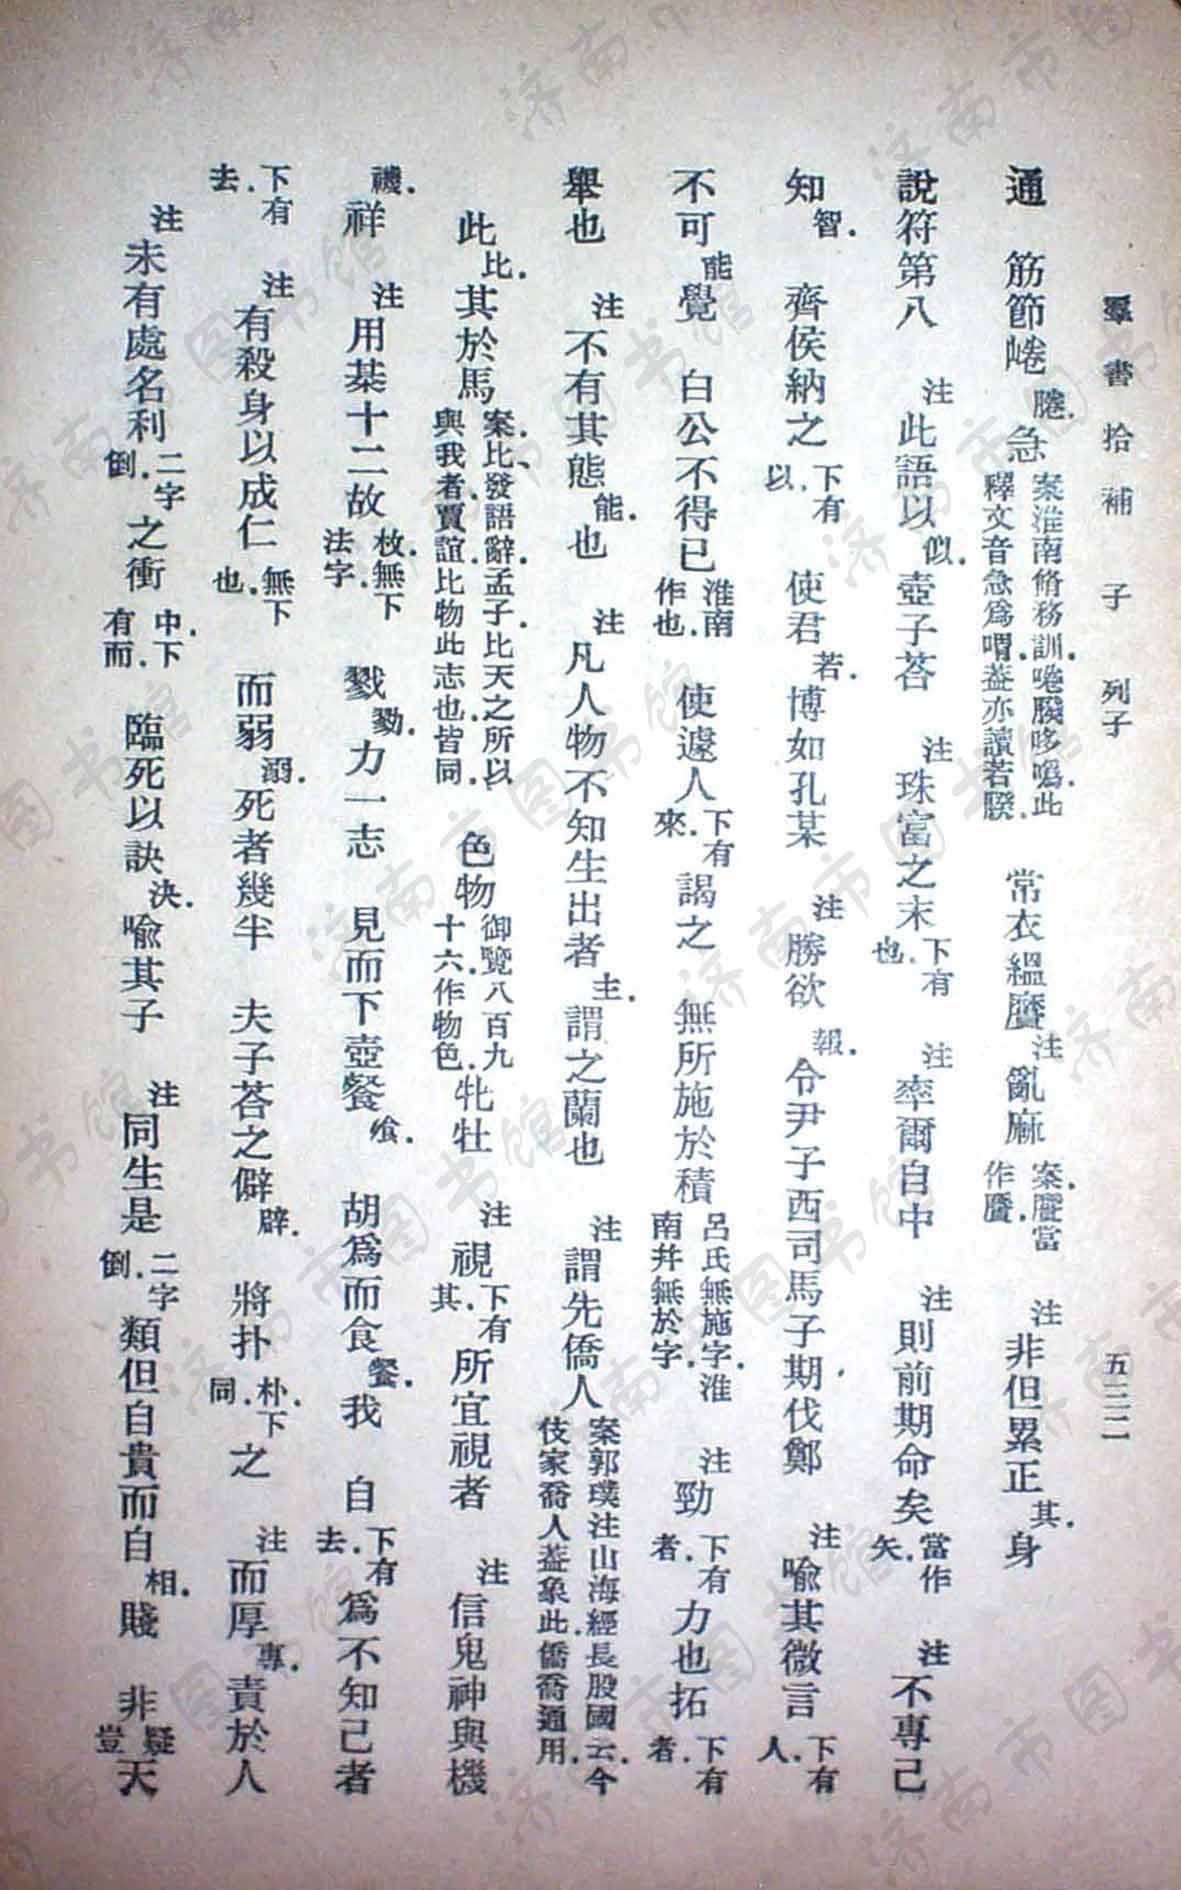 羣書拾補　子　列子　五三二
通　筋節㟡腃。急案淮南脩務訓。㗕䐔哆噅。此釋文音急爲喟。蓋亦讀若䐔。　常衣緼黂注亂麻案。黂當作黂。　注非但累正其。身
說符第八　注此語以似。壺子荅　注珠富之末下有也。　注率爾自中　注則前期命矣當作矢。　注不專己
知智。　齊侯納之下有以。　使君若。博如孔某　注勝欲報。　令尹子西司馬子期伐鄭　注喻其微言下有人。
不可能覺　白公不得已淮南作也。　使遽人下有來。謁之　無所施於積呂氏無施字。淮南幷無於字。　注勁下有者。力也拓下有者。
舉也　注不有其態能。也　注凡人物不知生出者主。謂之蘭也　注謂先僑人案郭璞注山海經長股國云。今伎家喬人蓋象此。僑喬通用。
此比。其於馬案。比、發語辭。孟子比天之所以與我者。賈誼比物此志也。皆同。　色物御覽八百九十六作物色。牝牡　注視下有其。所宜視者　注信鬼神與機
禨。祥　注用棊十二故枚。無下法字。　戮勠。力一志　見而下壺餐飧。　胡爲而食餐。我　自下有去。爲不知己者
下有去。　注有殺身以成仁無下也。　而弱溺。死者幾半　夫子荅之僻辟。　將扑朴。下同。之　注而厚專。責於人
注未有處名利二字倒。之衝中。下有而。　臨死以訣決。喻其子　注同生是二字倒。類但自貴而自相。賤　非疑豈天